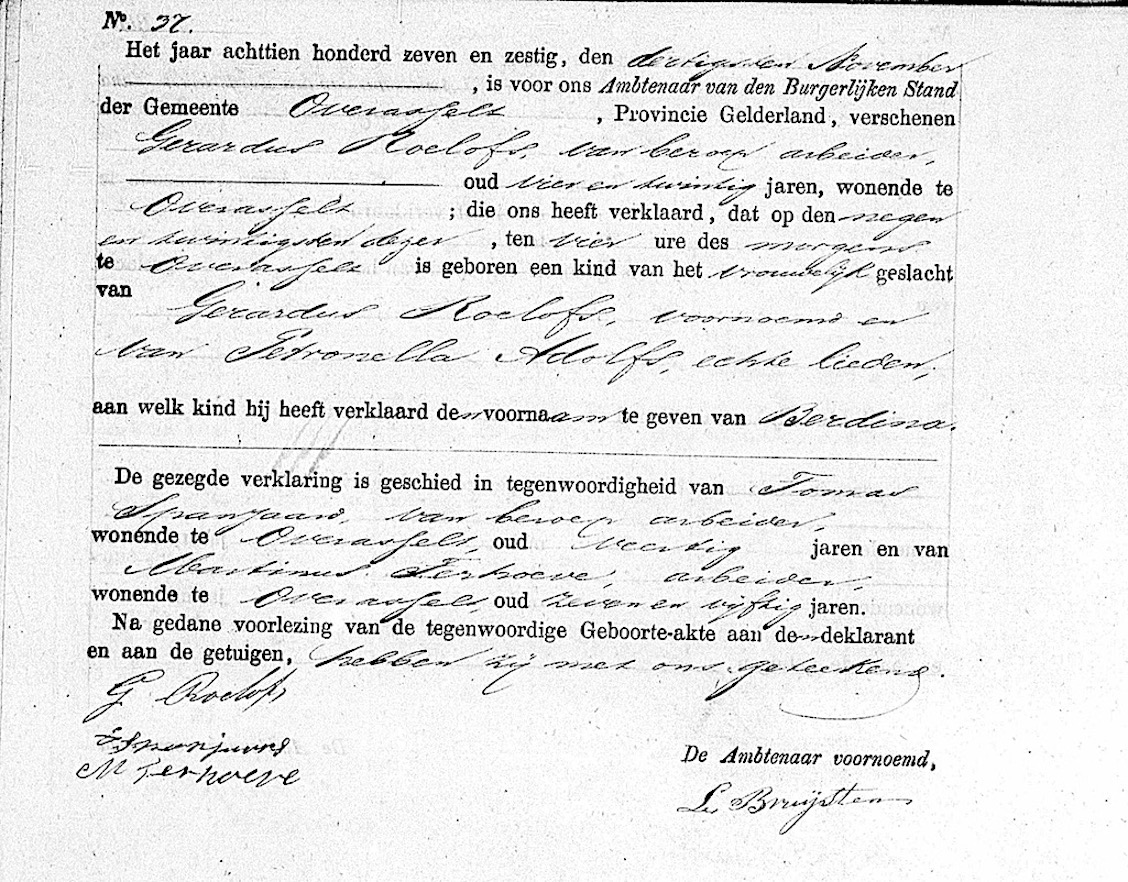 No. 37.
Het jaar achttien honderd zeven en zestig, den dertigsten November
, is voor ons Ambtenaar van den Burgerlijken Stand
der Gemeente Overasselt , Provincie Gelderland, verschenen
Gerardus Roelofs, van beroep arbeider,
oud vier en twintig jaren, wonende te
Overasselt ; die ons heeft verklaard, dat op den negen
en twintigsten dezer , ten vier ure des morgens
te Overasselt is geboren een kind van het vrouwelijk geslacht
van
Gerardus Roelofs, voornoemd en
van Petronella Adolfs, echte lieden,
aan welk kind hij heeft verklaard den voornaam te geven van Berdina.
De gezegde verklaring is geschied in tegenwoordigheid van Tomas
Spanjaard, van beroep arbeider,
wonende te Overasselt, oud veertig jaren en van
Martinus Terhoeve, arbeider,
wonende te Overasselt, oud zeven en vijftig jaren.
Na gedane voorlezing van de tegenwoordige Geboorte-akte aan den deklarant
en aan de getuigen, hebben zij met ons geteekend.
G Roelofs
T Spanjaard
M Terhoeve
De Ambtenaar voornoemd,
L. Bruijsten